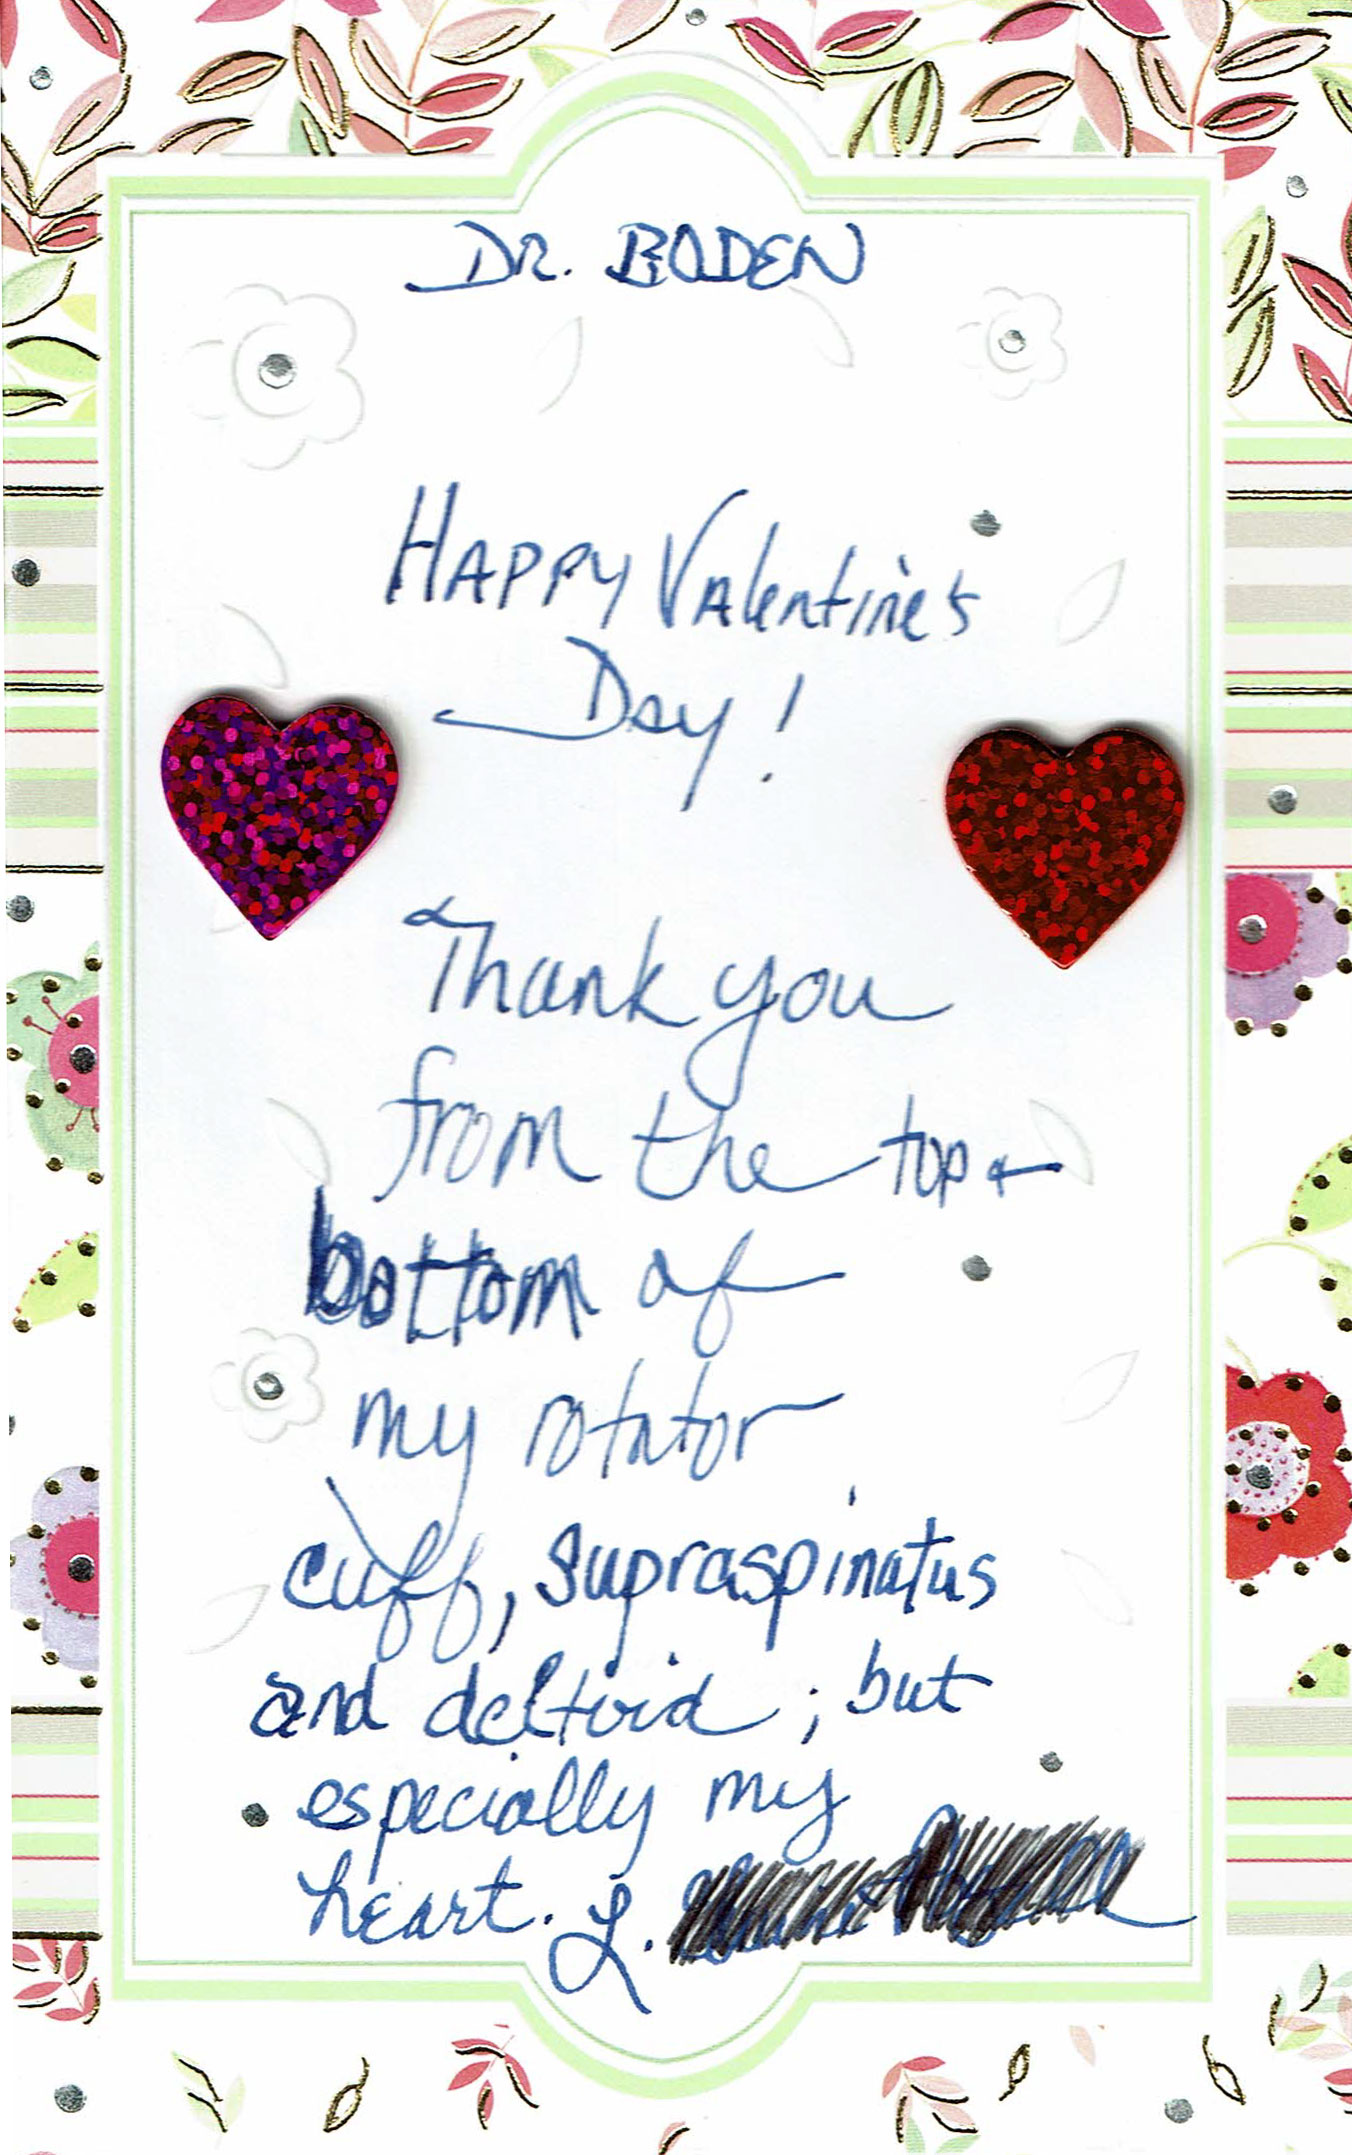 DR. BODEN
HAPPY VAlentine's
Day!
Thank you
from the top +
bottom of
my rotator
cuff, supraspinatus
and deltoid; but
especially my
heart. L.